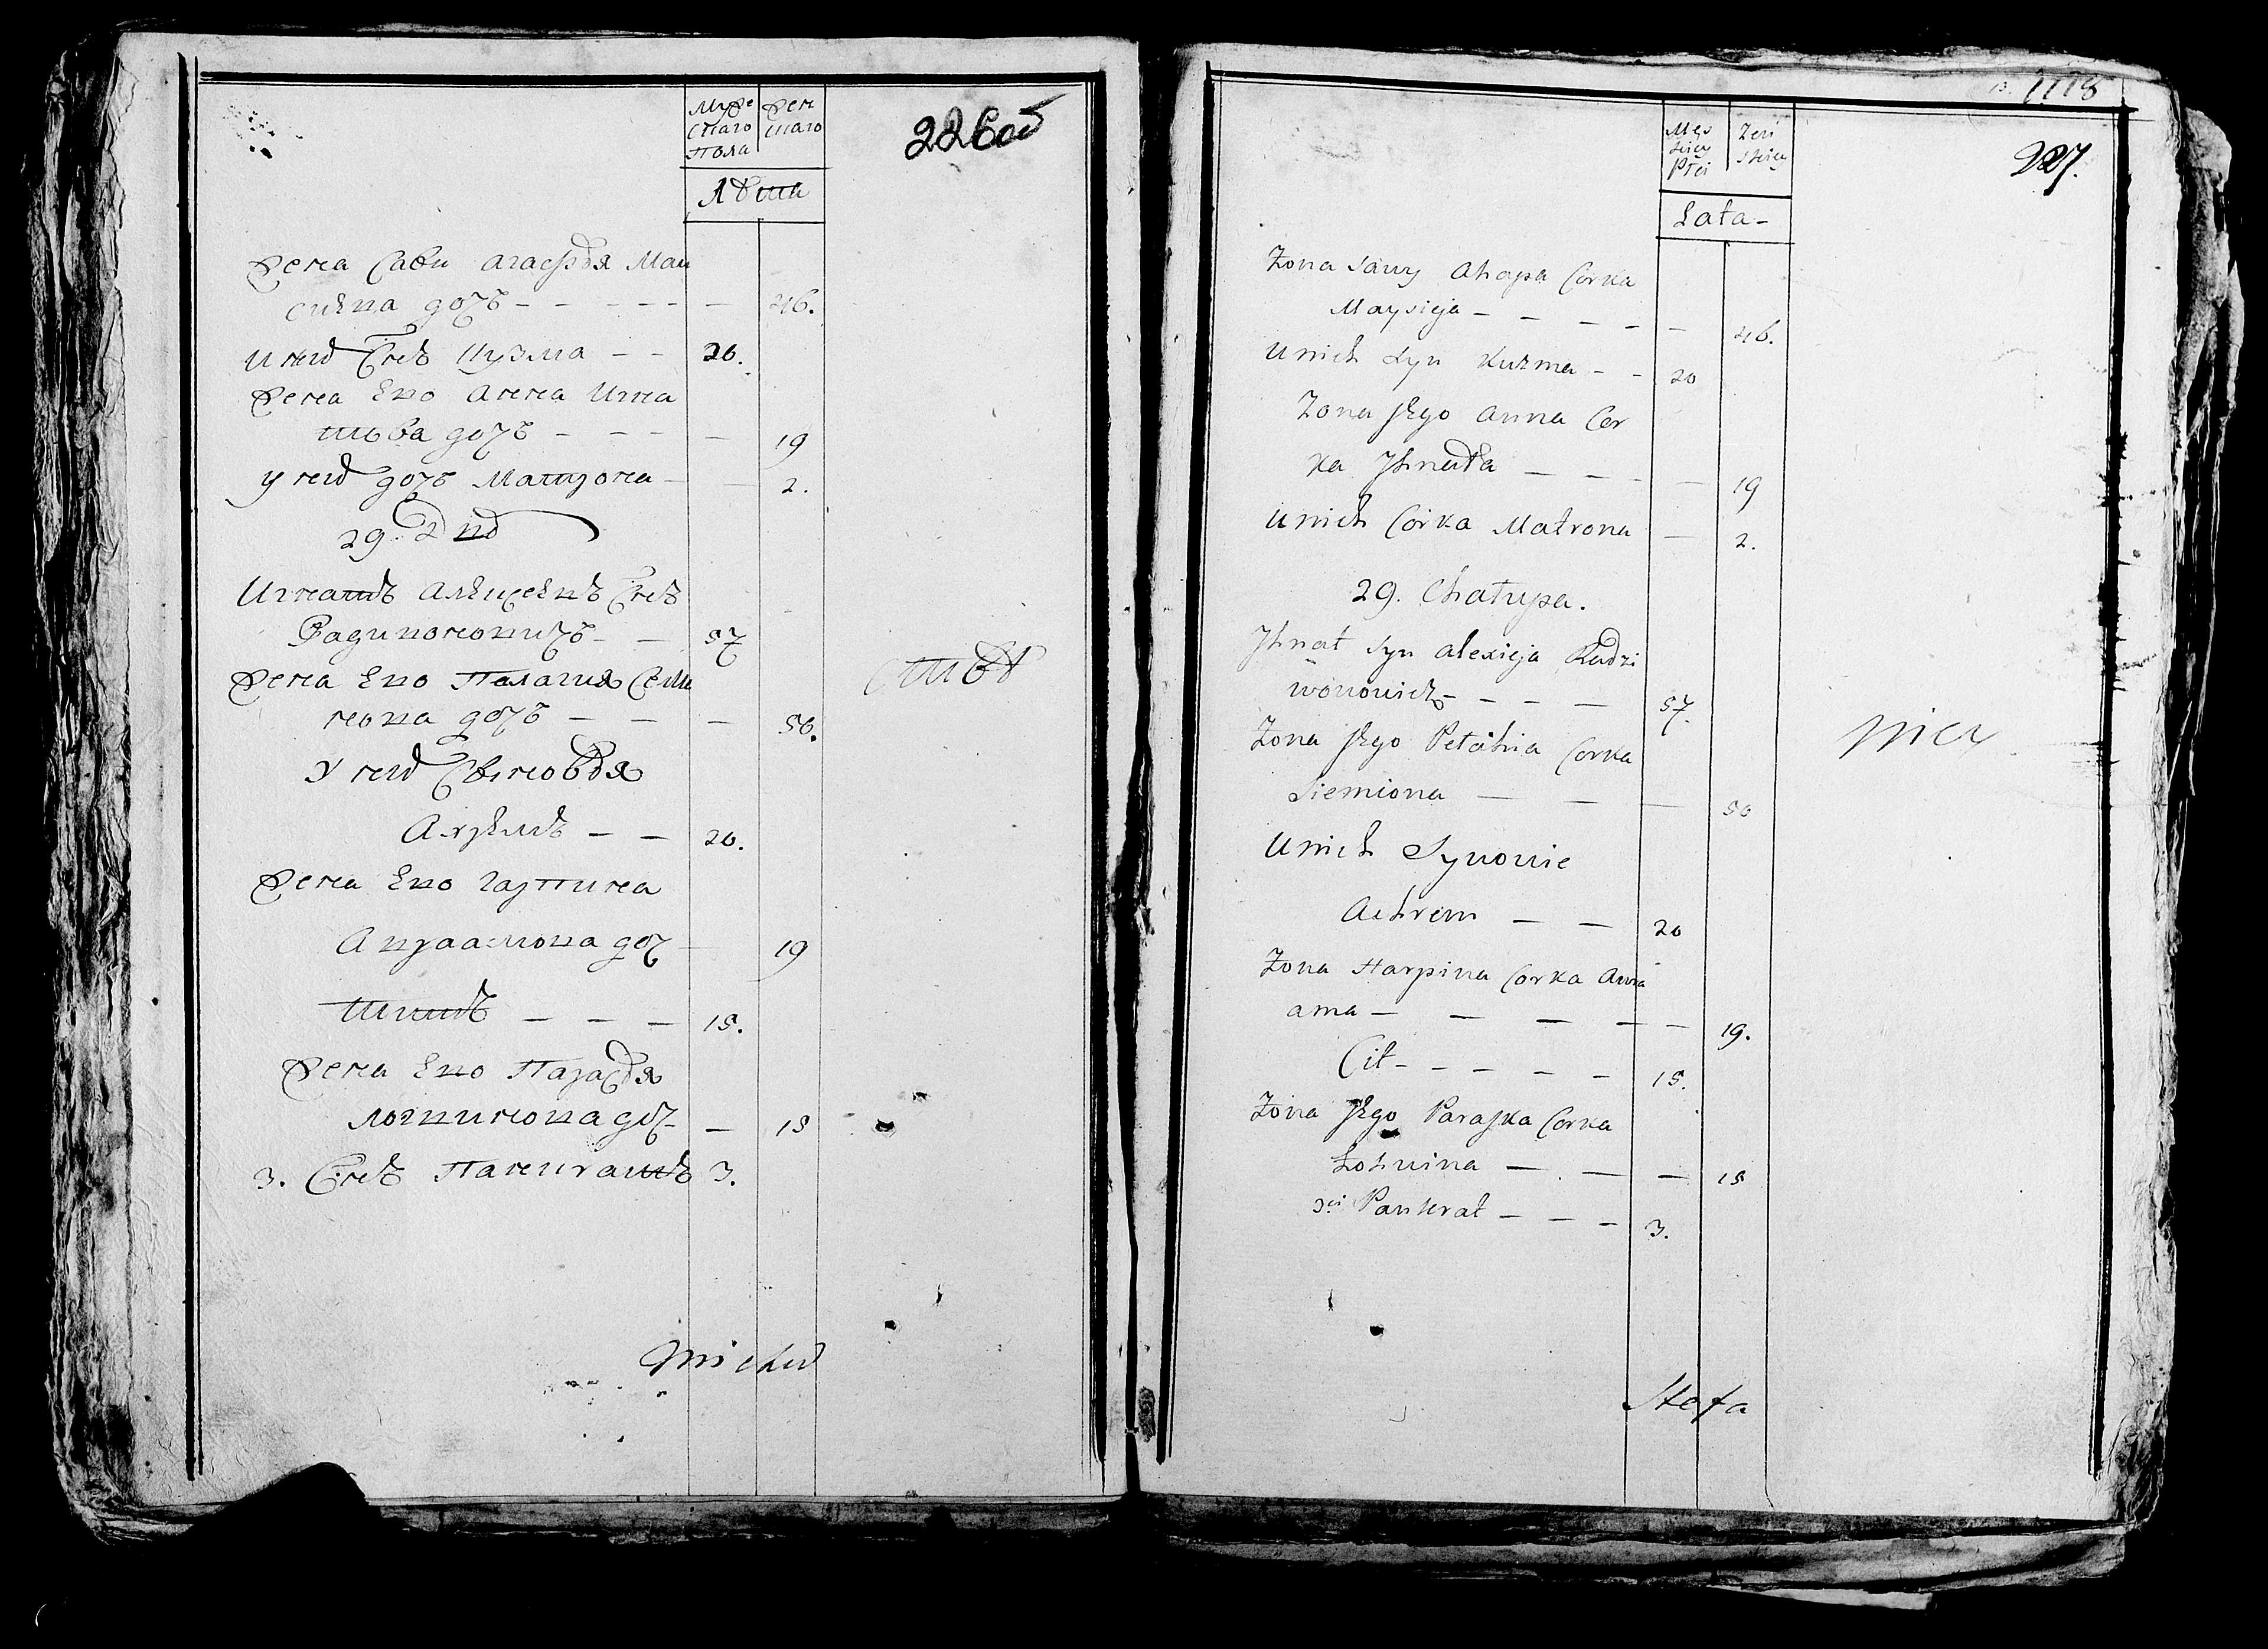 Муже
Жен
скаго
скаго
Пола
226об
Лѣта
Жена Сави Агафія Мои
сиева дочь - - - - - 46.
У нихъ Снъ Кузма - - 20.
Жена Его Анна Игна
това дочь - - - - 19
У нихъ дочь Матрона - - 2.
29. Дво
Игнатъ Алексеевъ Снъ
Радивоновичъ - - 57
Жена Его Палагия Семи
нова дочь - - - 50.
У нихъ Сыновья
Ахремъ - - 20.
Жена Его Гарпина
Авраамова доч - 19
Титъ - - - 15.
Жена Его Параска
Логвинова доч - - 15
3. Снъ Панкратъ 3.
1118
227.
Męs
Zeń
skiey
skiey
Płci
Lata -
Zona Sawy Ahapa Corka
Maysieja - - - - - 46.
Unich Syn Kuzma - - 20
Zona Jego Anna Cor
ka Jhnata - - - - 19
Unich Corka Matrona - 2.
29. Chatupa.
Jhnat Syn alexieja Radzi
wonowicz - - - 57.
Zona Jego Petahia Corka
Siemiona - - - 50
Unich Synowie
Achrem - - 20
Zona Harpina Corka Awra
ama - - - - - 19.
Cit - - - - - 15.
Zona Jego Paraska Corka
Łohwina - - - 15
3ci Pankrat - - - 3.
Stefa